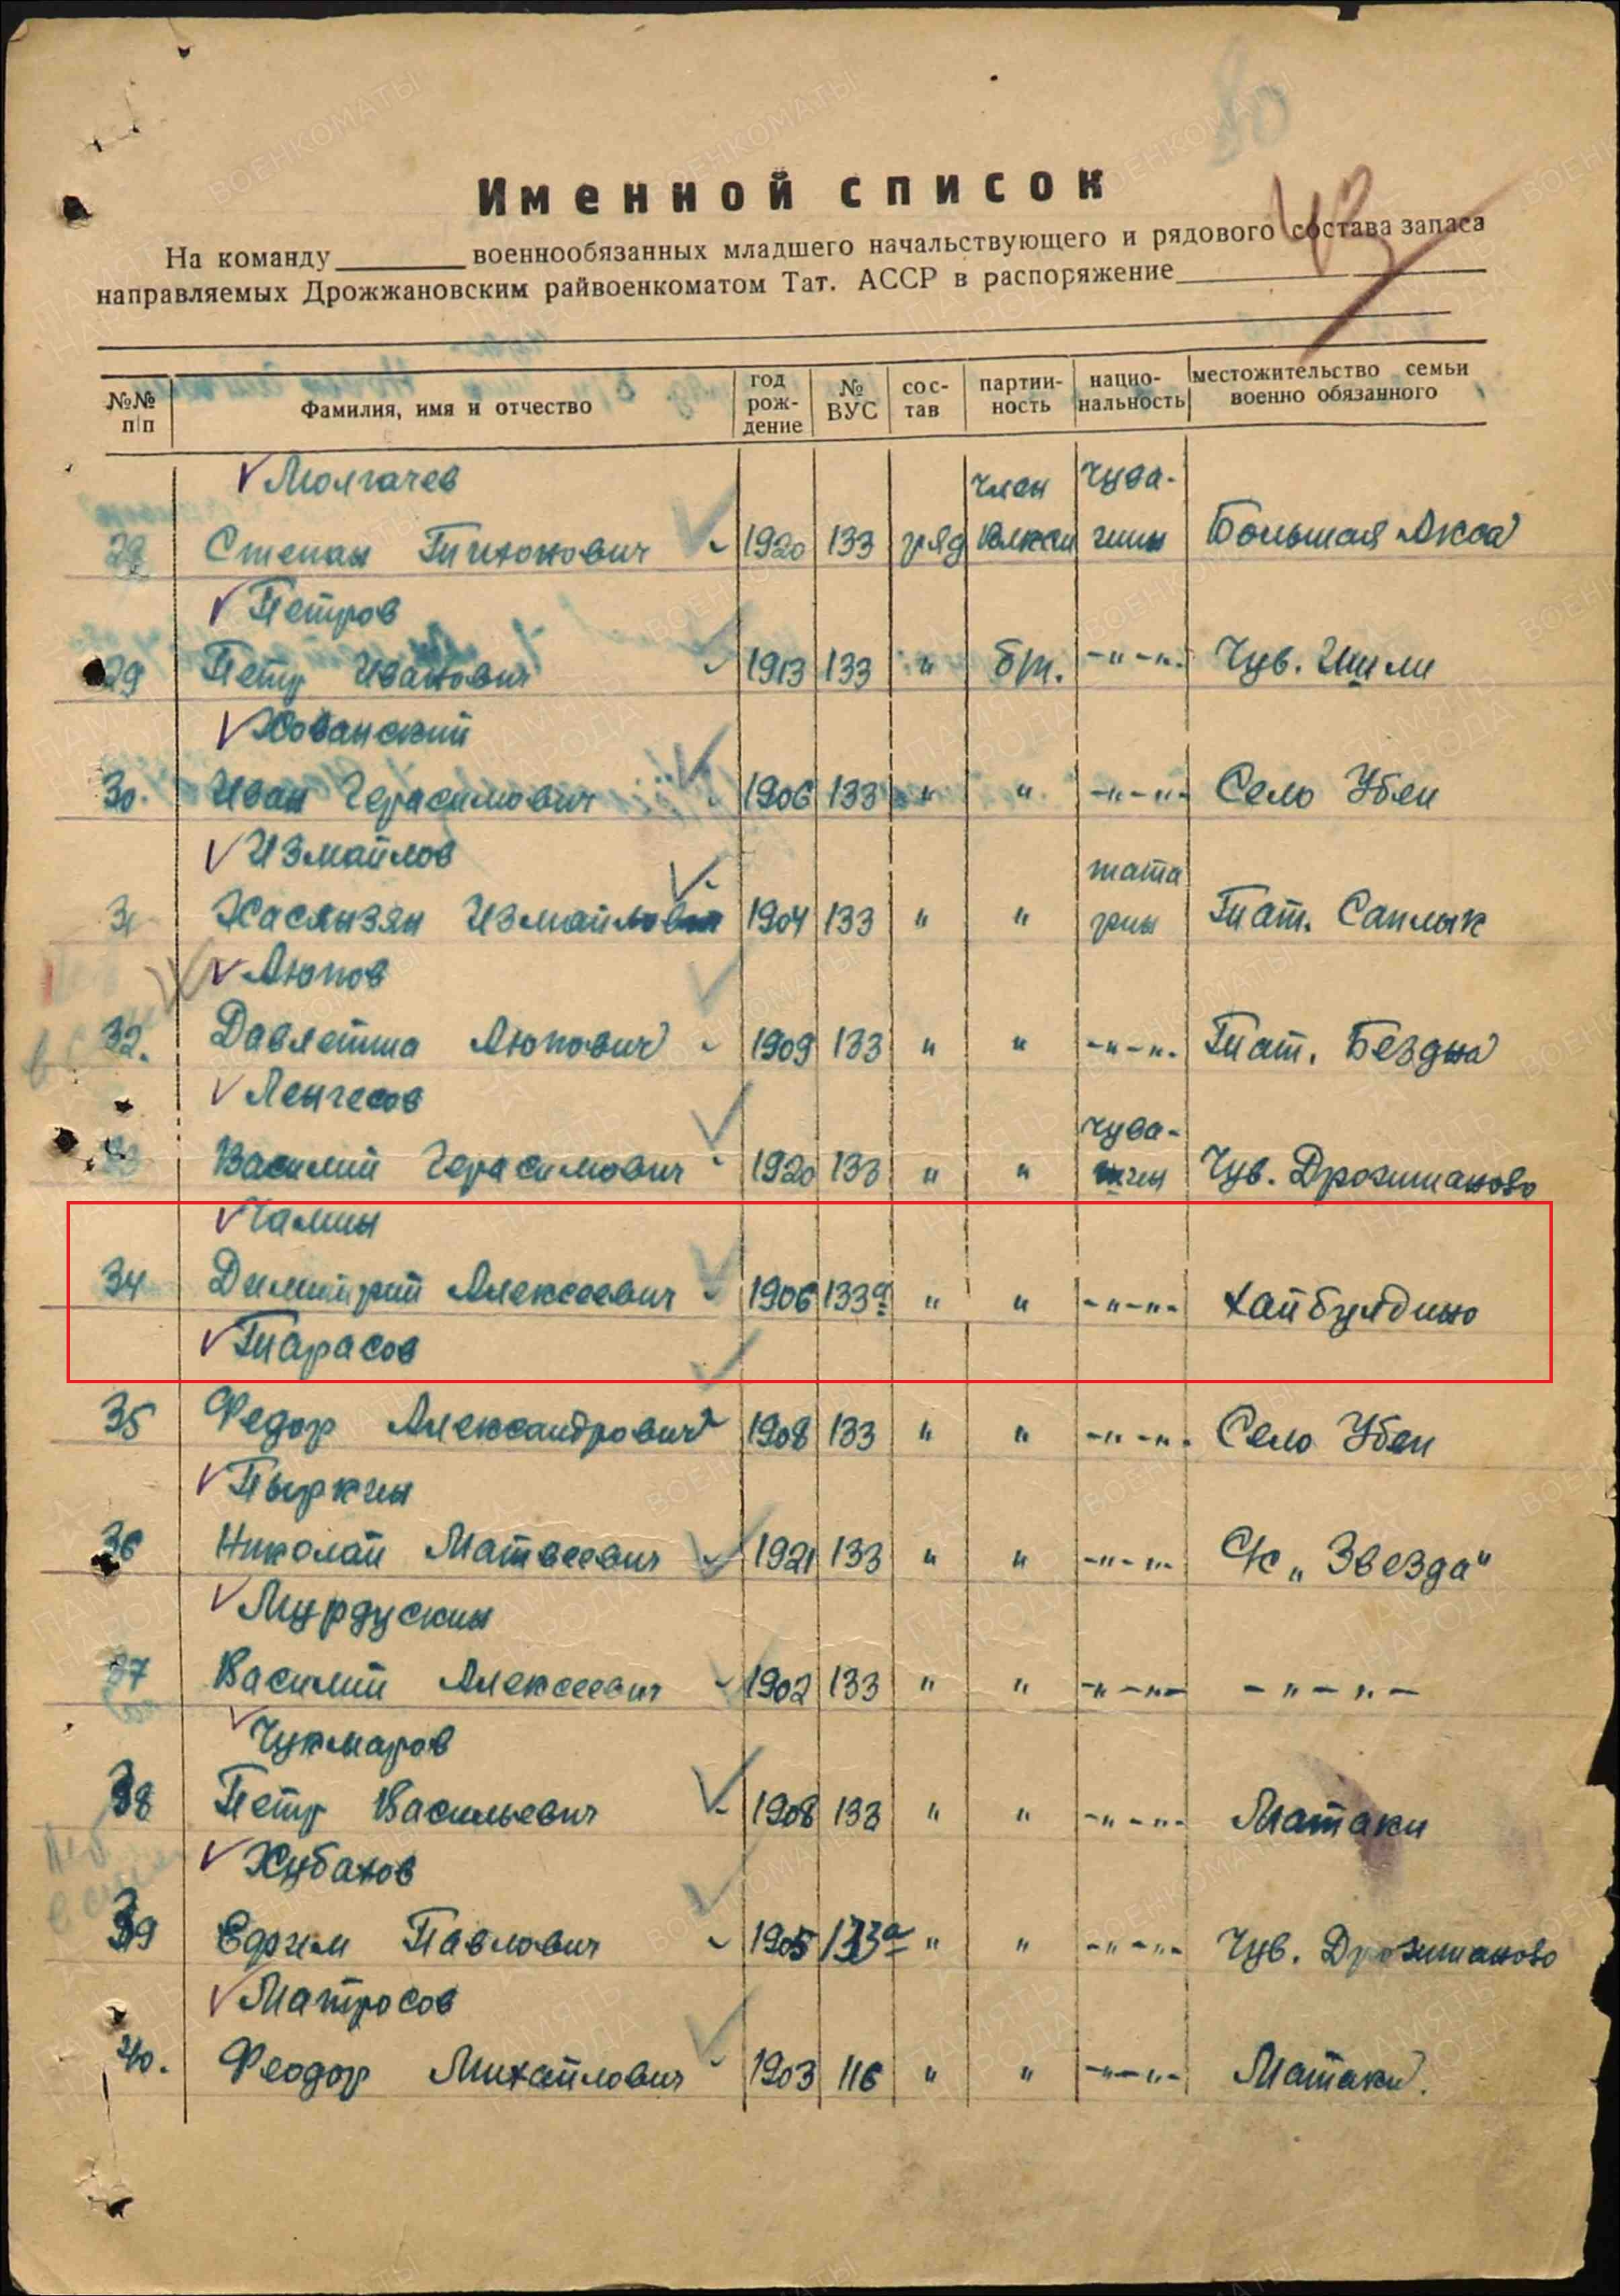 Именной список
На команду________ военнообязанных младшего начальствующего и рядового состава запаса
направляемых Дрожжановским райвоенкоматом Тат. АССР в распоряжение
№№ п/п Фамилия, имя и отчество год рож- дение № ВУС сос- тав партий- ность нацио- нальность местожительство семьи военно обязанного
Молгачев член чува-
28 Степан Тихонович 1920 133 ряд ВЛКСМ шин Большая Акса
Петров
29 Петр Иванович 1913 133 " б/п. -"-". Чув. Ишли
Хованский
30. Иван Герасимович 1906 133 " " -"-"- Село Убеи
Измайлов тата
31 Хасянзян Измайлович 1904 133 " " рин Тат. Саплык
Аюпов
32. Давлетша Аюпович 1909 133 " " -"-". Тат. Бездна
Ленгесов чува-
33 Василий Герасимович 1920 133 " " шин Чув. Дрожжаново
Чамин
34 Димитрий Алексеевич 1906 133а " " -"-"- Хайбулдино
Тарасов
35 Федор Александрович 1908 133 " " -"-". Село Убеи
Пыркин
36 Николай Матвеевич 1921 133 " " -"-". С/х „Звезда"
Мурдускин
37 Василий Алексеевич 1902 133 " " -"-"- -"-"-
Чукмаров
38 Петр Васильевич 1908 133 " " -"-"- Матаки
Хубахов
39 Ефим Павлович 1905 133а " " -"-"- Чув. Дрожжаново
Матросов
40. Феодор Михайлович 1903 116 " " -"-"- Матаки.